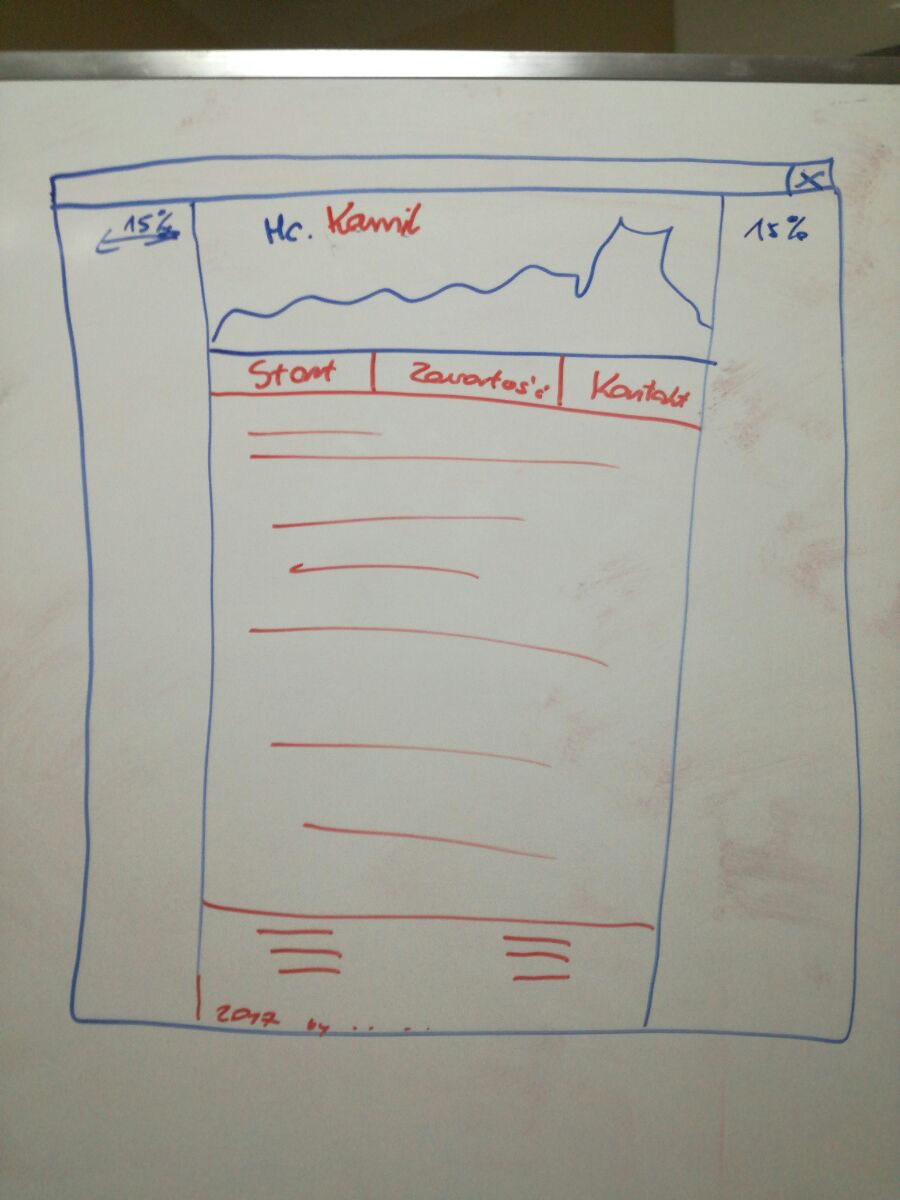 X
15% Mc. Kamil 15%
Start Zawartość Kontakt
2017 by .. ..